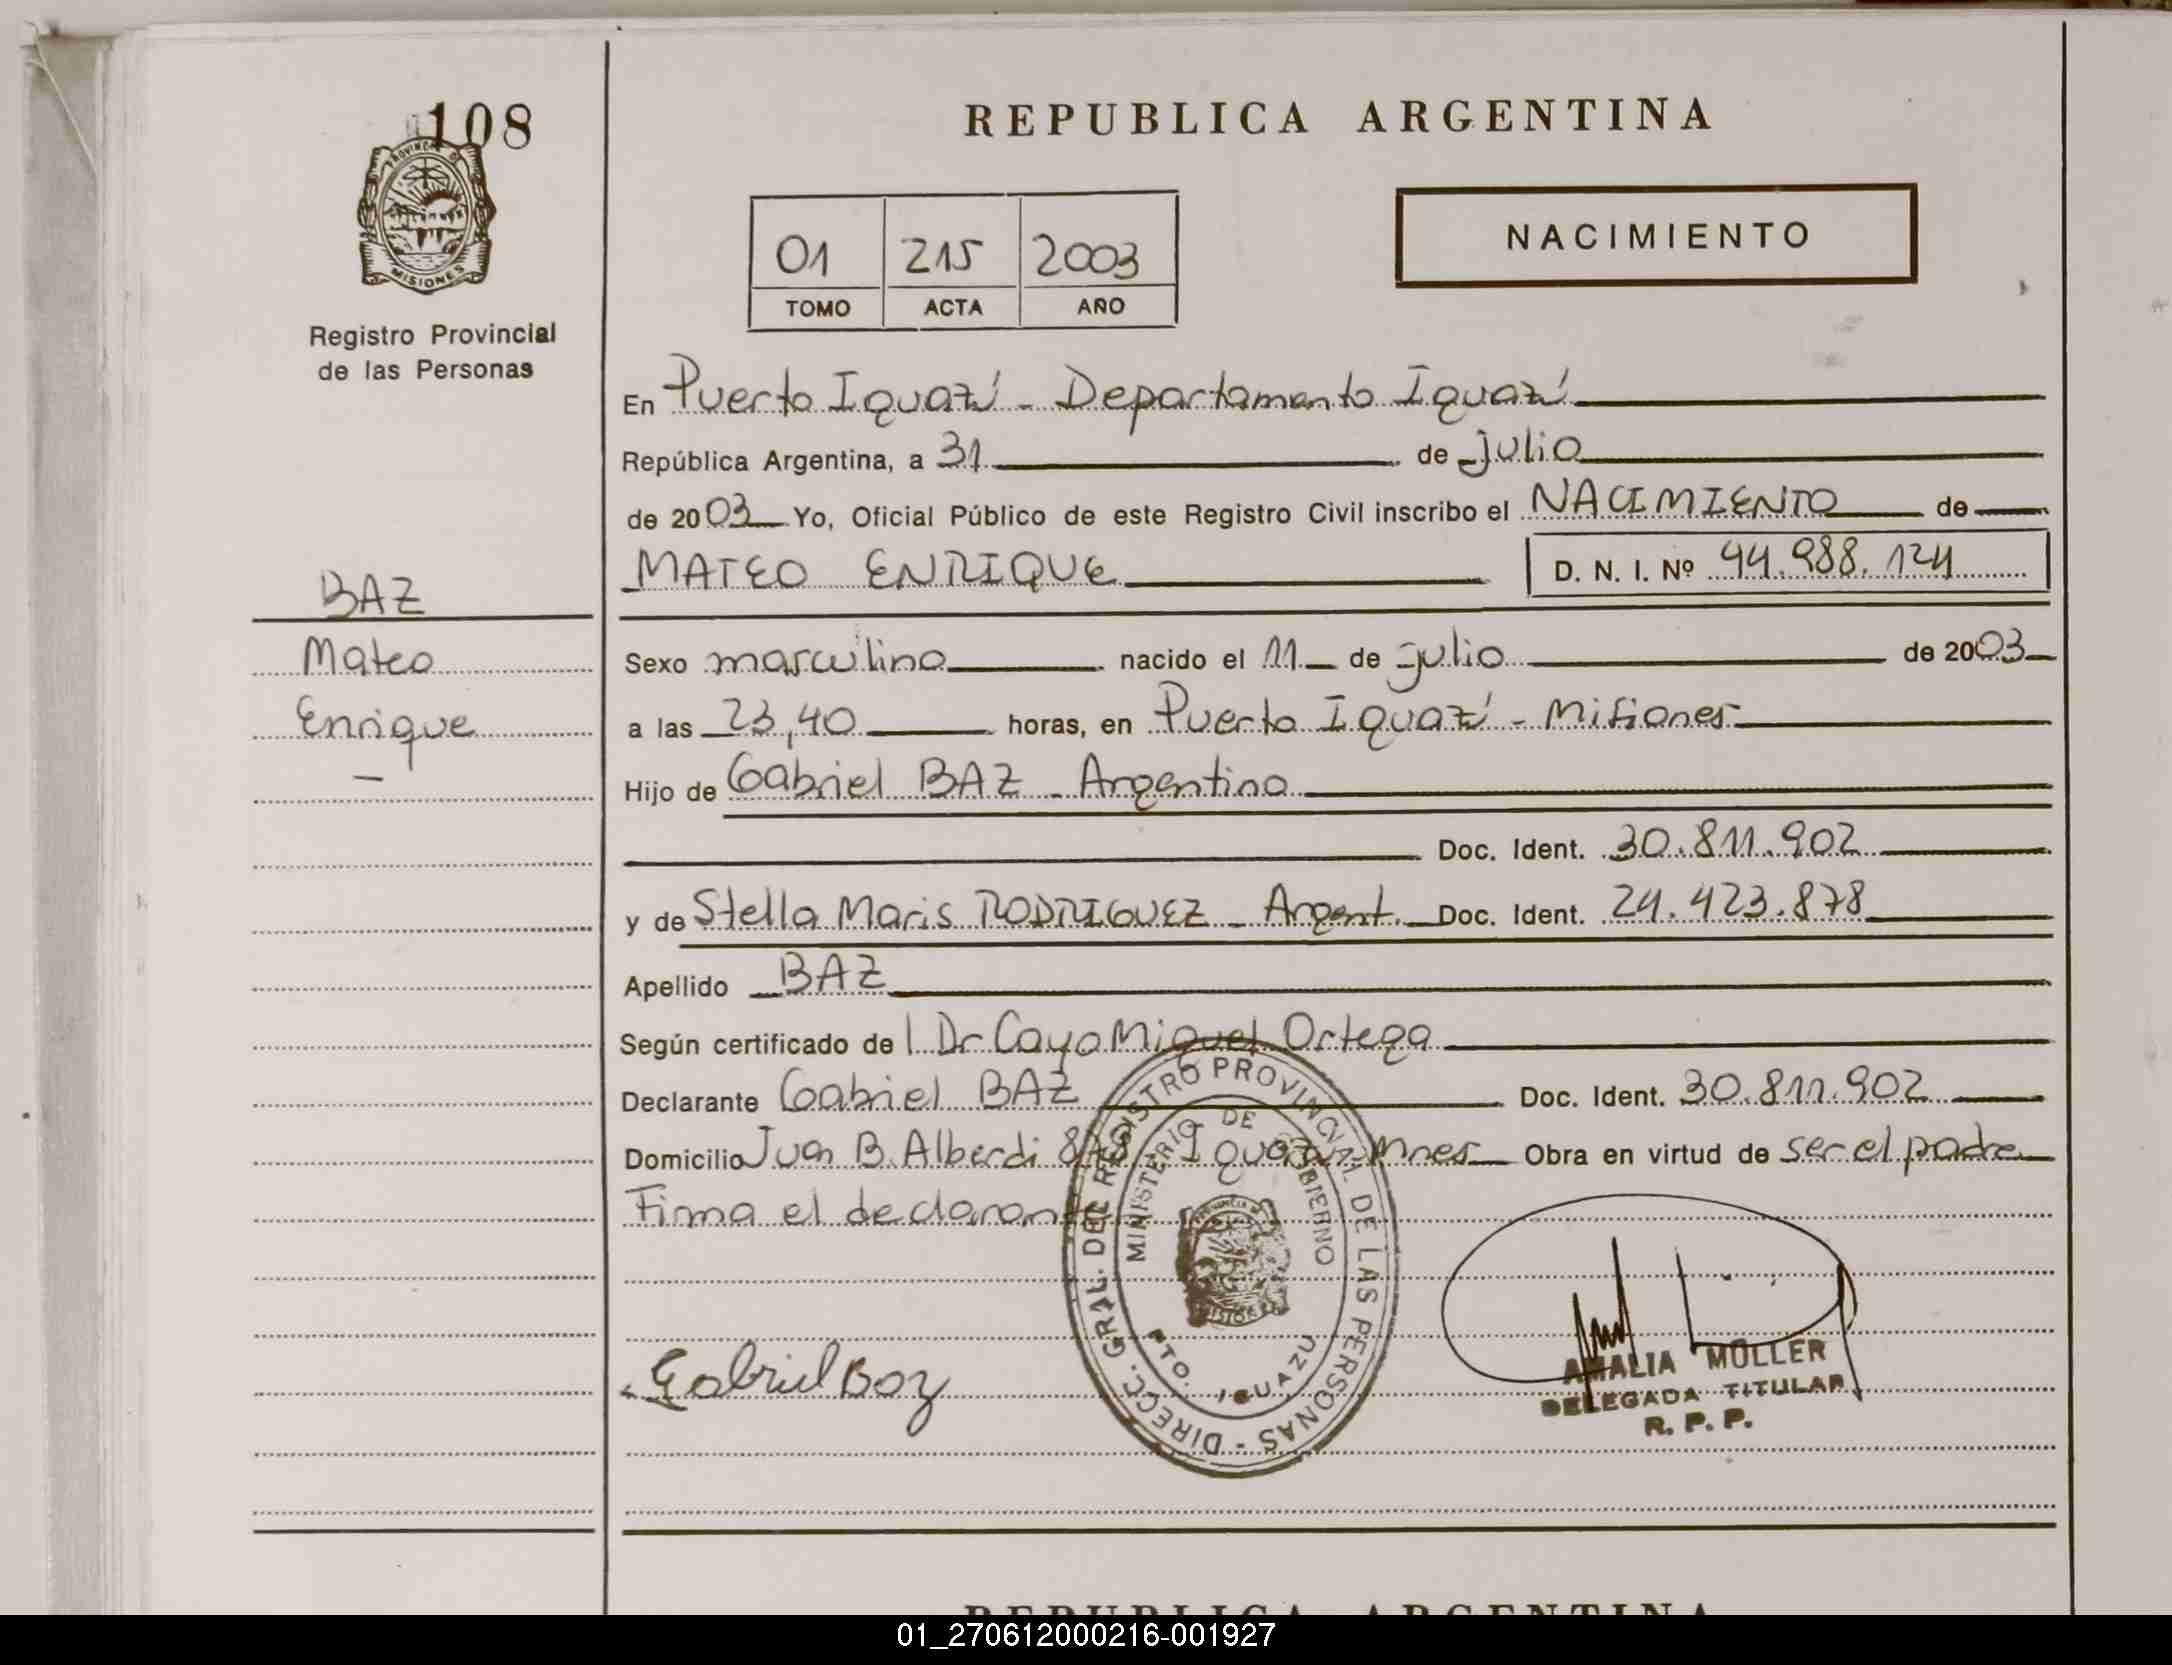 108
PROVINCIA DE
MISIONES
Registro Provincial
de las Personas
REPUBLICA ARGENTINA
01 215 2003
TOMO ACTA AÑO
NACIMIENTO
En Puerto Iguazú - Departamento Iguazú
República Argentina, a 31 de julio
de 2003 Yo, Oficial Público de este Registro Civil inscribo el NACIMIENTO de
MATEO ENRIQUE D. N. I. Nº 44.988.124
BAZ
Mateo
Enrique
Sexo masculino nacido el 11 de julio de 2003
a las 23,40 horas, en Puerto Iguazú - Misiones
Hijo de Gabriel BAZ - Argentino
Doc. Ident. 30.811.902
y de Stella Maris RODRIGUEZ - Argent. Doc. Ident. 24.423.878
Apellido BAZ
Según certificado de l Dr Cayo Miguel Ortega
Declarante Gabriel BAZ Doc. Ident. 30.811.902
Domicilio Juan B. Alberdi Iguazú - Mnes Obra en virtud de ser el padre
Firma el declarante
DIRECC. GRAL. DEL REGISTRO PROVINCIAL DE LAS PERSONAS -
MINISTERIO DE GOBIERNO
PTO. IGUAZU
Gabriel Baz
AMALIA MÜLLER
DELEGADA TITULAR
R. P. P.
REPUBLICA ARGENTINA
01_270612000216-001927